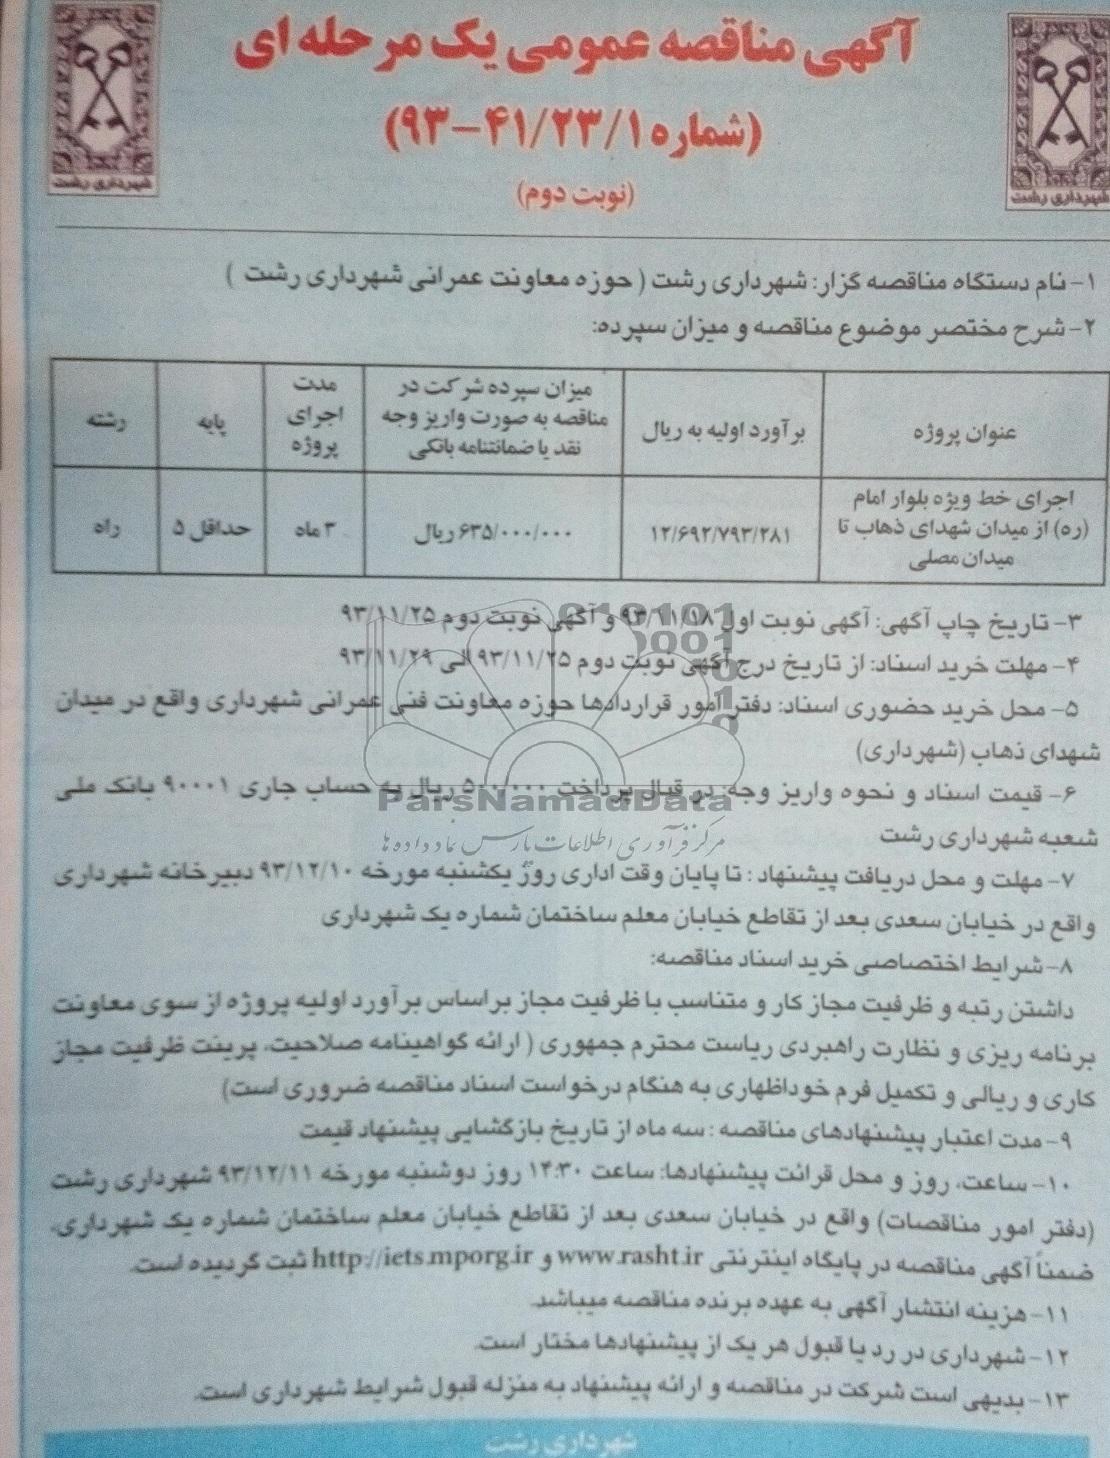 آگهی مناقصه عمومی یک مرحله ای
(شماره ۹۳-۴۱/۲۳/۱)
(نوبت دوم)
شهرداری رشت
شهرداری رشت
۱- نام دستگاه مناقصه گزار: شهرداری رشت ( حوزه معاونت عمرانی شهرداری رشت )
۲- شرح مختصر موضوع مناقصه و میزان سپرده:
عنوان پروژه
برآورد اولیه به ریال
میزان سپرده شرکت در
مناقصه به صورت واریز وجه
نقد یا ضمانتنامه بانکی
مدت
اجرای
پروژه
پایه
رشته
اجرای خط ویژه بلوار امام
(ره) از میدان شهدای ذهاب تا
میدان مصلی
۱۲/۶۹۲/۷۹۳/۲۸۱
۶۳۵/۰۰۰/۰۰۰ ریال
۳ ماه
حداقل ۵
راه
۳- تاریخ چاپ آگهی: آگهی نوبت اول ۹۳/۱۱/۱۸ و آگهی نوبت دوم ۹۳/۱۱/۲۵
۴- مهلت خرید اسناد: از تاریخ درج آگهی نوبت دوم ۹۳/۱۱/۲۵ الی ۹۳/۱۱/۲۹
۵- محل خرید حضوری اسناد: دفتر امور قراردادها حوزه معاونت فنی عمرانی شهرداری واقع در میدان
شهدای ذهاب (شهرداری)
۶- قیمت اسناد و نحوه واریز وجه: در قبال پرداخت ۵۰۰/۰۰۰ ریال به حساب جاری ۹۰۰۰۱ بانک ملی
شعبه شهرداری رشت
ParsNamadData
مرکز فرآوری اطلاعات پارس نماد داده ها
۷- مهلت و محل دریافت پیشنهاد : تا پایان وقت اداری روز یکشنبه مورخه ۹۳/۱۲/۱۰ دبیرخانه شهرداری
واقع در خیابان سعدی بعد از تقاطع خیابان معلم ساختمان شماره یک شهرداری
۸- شرایط اختصاصی خرید اسناد مناقصه:
داشتن رتبه و ظرفیت مجاز کار و متناسب با ظرفیت مجاز براساس برآورد اولیه پروژه از سوی معاونت
برنامه ریزی و نظارت راهبردی ریاست محترم جمهوری ( ارائه گواهینامه صلاحیت، پرینت ظرفیت مجاز
کاری و ریالی و تکمیل فرم خوداظهاری به هنگام درخواست اسناد مناقصه ضروری است)
۹- مدت اعتبار پیشنهادهای مناقصه : سه ماه از تاریخ بازگشایی پیشنهاد قیمت
۱۰- ساعت، روز و محل قرائت پیشنهادها: ساعت ۱۴:۳۰ روز دوشنبه مورخه ۹۳/۱۲/۱۱ شهرداری رشت
(دفتر امور مناقصات) واقع در خیابان سعدی بعد از تقاطع خیابان معلم ساختمان شماره یک شهرداری،
ضمناً آگهی مناقصه در پایگاه اینترنتی www.rasht.ir و http://iets.mporg.ir ثبت گردیده است.
۱۱- هزینه انتشار آگهی به عهده برنده مناقصه میباشد.
۱۲- شهرداری در رد یا قبول هر یک از پیشنهادها مختار است.
۱۳- بدیهی است شرکت در مناقصه و ارائه پیشنهاد به منزله قبول شرایط شهرداری است.
شهرداری رشت